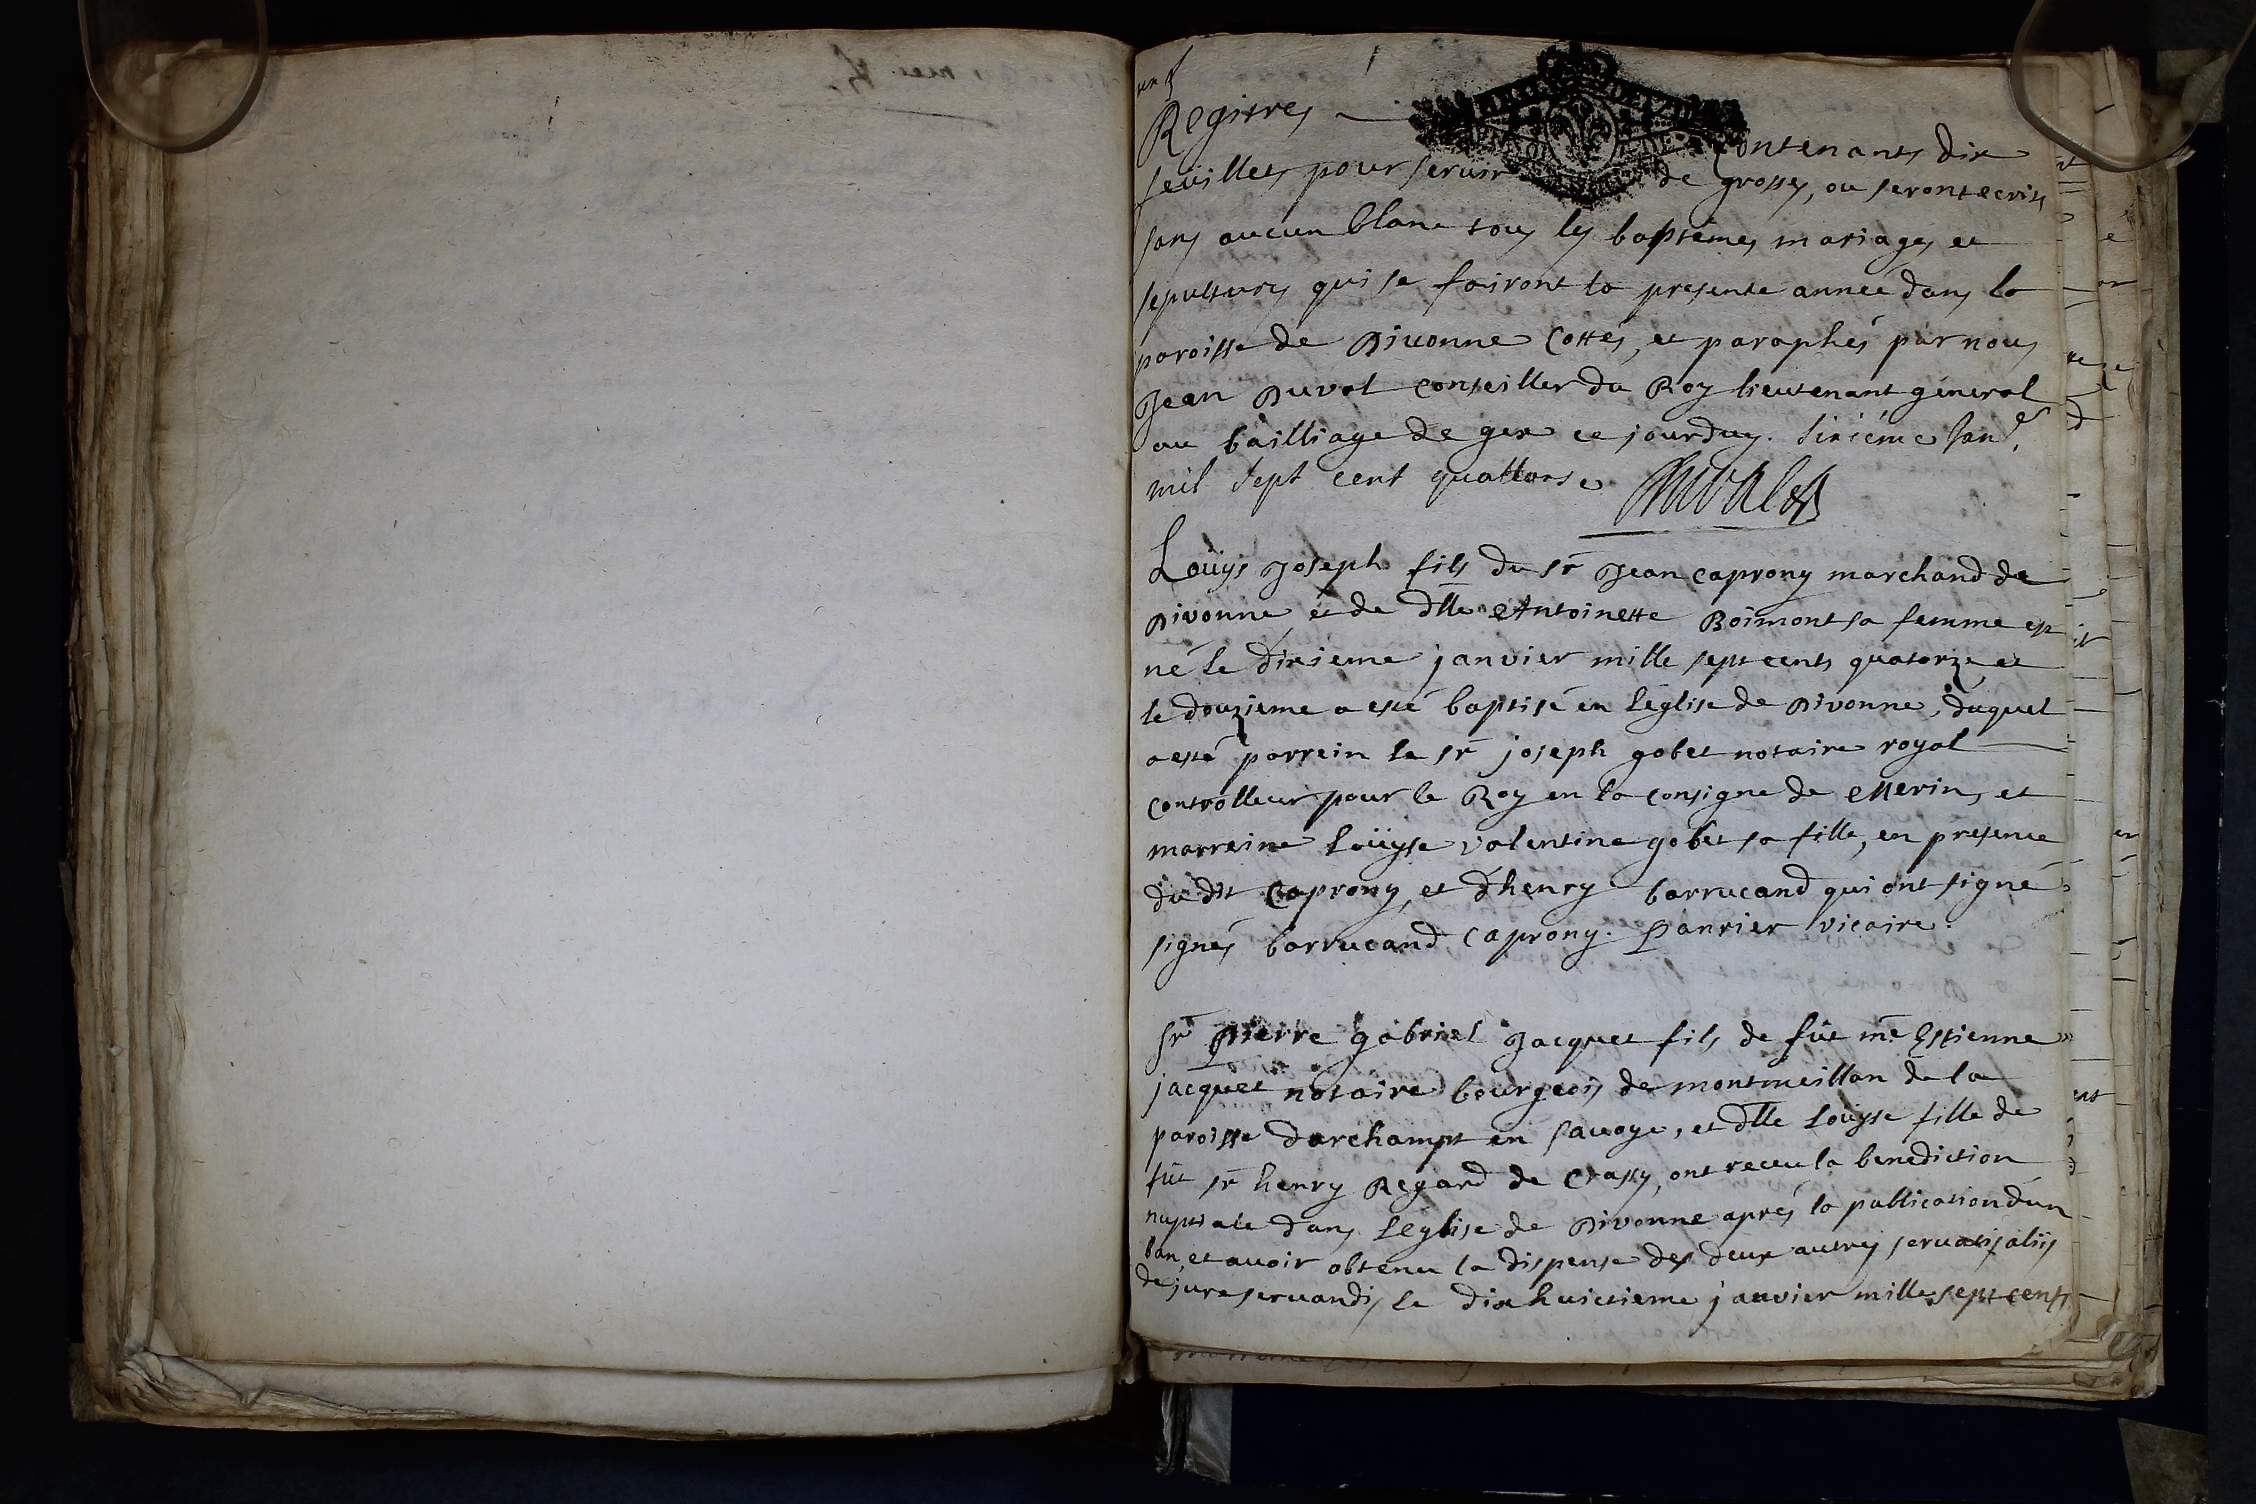 un
Registres contenants dix
feuillets pour servir de grosses, ou seront ecrits
sans aucun blanc tous les baptémes, mariages et
sepultures qui se fairont la presente année dans la
paroisse de Divonne Cottés, et paraphés par nous
Jean Duval conseiller du Roy lieutenant géneral
au bailliage de gex ce jourduy. Sixiéme Jan.er
mil sept cent quattorse Duval
Loüys Joseph fils du sr Jean caprony marchand de
Divonne, et de dlle Antoinette Boimont sa femme est
né le dixieme janvier mille sept cents quatorze, et
le douzieme a esté baptisé en l'église de Divonne, duquel
a esté parrein le sr joseph gobet notaire royal
controlleur pour le Roy en la consigne de Merin, et
marreine Loüyse valentine gobet sa fille, en presence
du dit Caprony, et d'henry barrucand qui ont signé
signés barrucand Caprony. Panrier vicaire.
Sr Pierre gabriel Jacquet fils de fût me Estienne
jacquet notaire bourgeois de montmeillan de la
paroisse darchamps en savoye, et dlle Loüyse fille de
fût sr henry Regard de Crassy, ont receu la benediction
nuptiale dans l'eglise de Divonne aprés la publication d'un
ban, et avoir obtenu la dispense des deux autres servatis aliis
de jure servandis, le dixhuictieme janvier mille sept cents